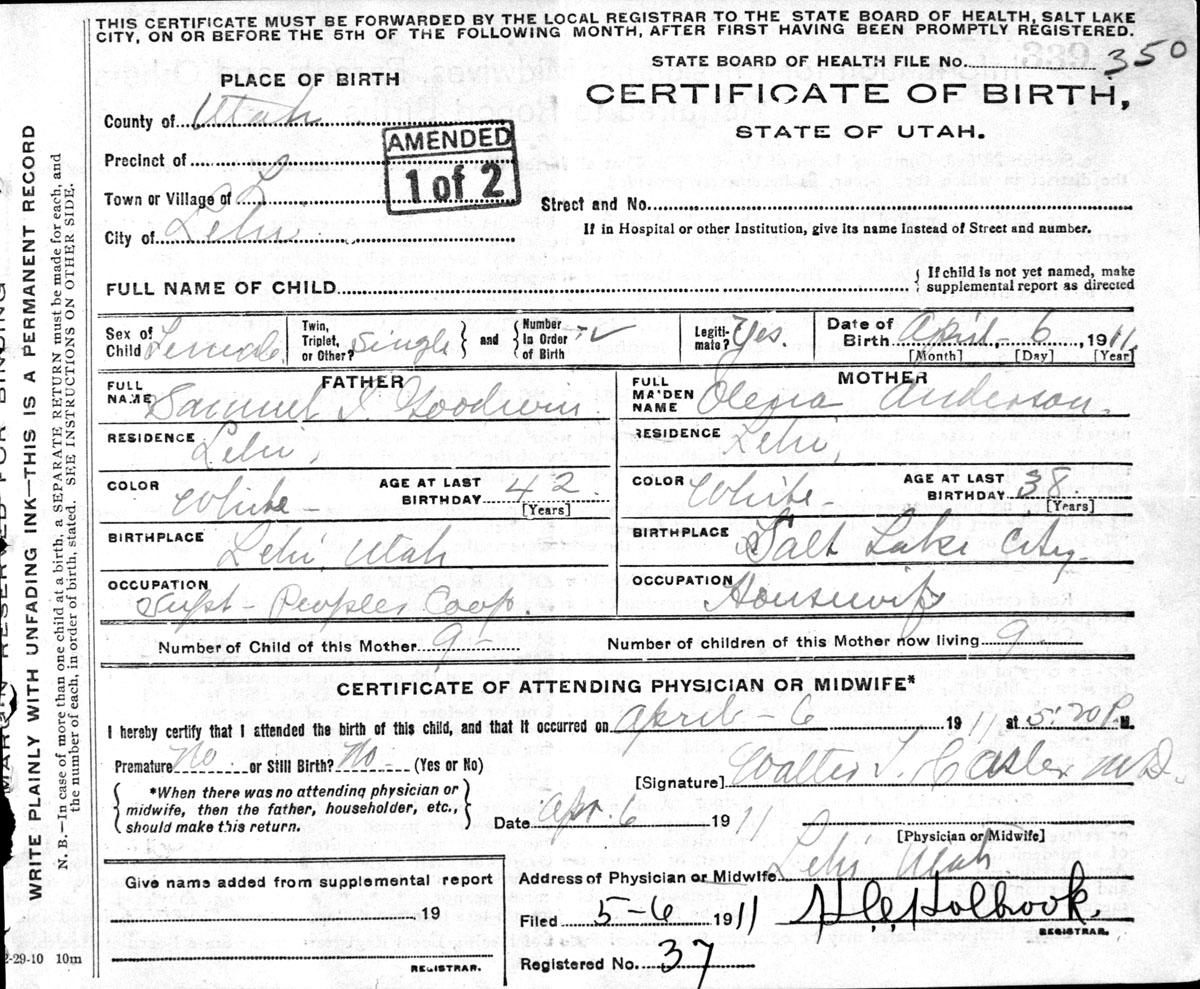 THIS CERTIFICATE MUST BE FORWARDED BY THE LOCAL REGISTRAR TO THE STATE BOARD OF HEALTH, SALT LAKE
CITY, ON OR BEFORE THE 5TH OF THE FOLLOWING MONTH, AFTER FIRST HAVING BEEN PROMPTLY REGISTERED.
STATE BOARD OF HEALTH FILE No. 350
CERTIFICATE OF BIRTH,
STATE OF UTAH.
PLACE OF BIRTH
County of Utah
Precinct of
Town or Village of
City of Lehi
AMENDED
1 of 2
Street and No.
If in Hospital or other Institution, give its name instead of Street and number.
FULL NAME OF CHILD
{ If child is not yet named, make
supplemental report as directed
Sex of
Child Female
Twin,
Triplet,
or Other? Single
} and {
Number
in Order
of Birth
Legiti-
mate? Yes.
Date of
Birth April - 6, 1911.
[Month] [Day] [Year]
FATHER
FULL
NAME Samuel I. Goodwin
RESIDENCE Lehi,
COLOR White -
AGE AT LAST
BIRTHDAY 42.
[Years]
BIRTHPLACE Lehi, Utah
OCCUPATION
Supt - Peoples Coop.
MOTHER
FULL
MAIDEN
NAME Anderson.
RESIDENCE Lehi,
COLOR White -
AGE AT LAST
BIRTHDAY 38.
[Years]
BIRTHPLACE Salt Lake City
OCCUPATION Housewife
Number of Child of this Mother 9 -
Number of children of this Mother now living 9
CERTIFICATE OF ATTENDING PHYSICIAN OR MIDWIFE*
I hereby certify that I attended the birth of this child, and that it occurred on April - 6 1911 at 5:20 P. M.
Premature No or Still Birth? No - (Yes or No)
[Signature] Walter T. Hasler M.D.
{ *When there was no attending physician or
midwife, then the father, householder, etc.,
should make this return. }
Date Apr. 6 1911
[Physician or Midwife]
Address of Physician or Midwife Lehi Utah
Give name added from supplemental report
19
REGISTRAR.
Filed 5-6 1911 Holbrook.
REGISTRAR.
Registered No. 37
2-29-10 10m
MARGIN RESERVED FOR BINDING
WRITE PLAINLY WITH UNFADING INK—THIS IS A PERMANENT RECORD
N. B.—In case of more than one child at a birth, a SEPARATE RETURN must be made for each, and
the number of each, in order of birth, stated. SEE INSTRUCTIONS ON OTHER SIDE.